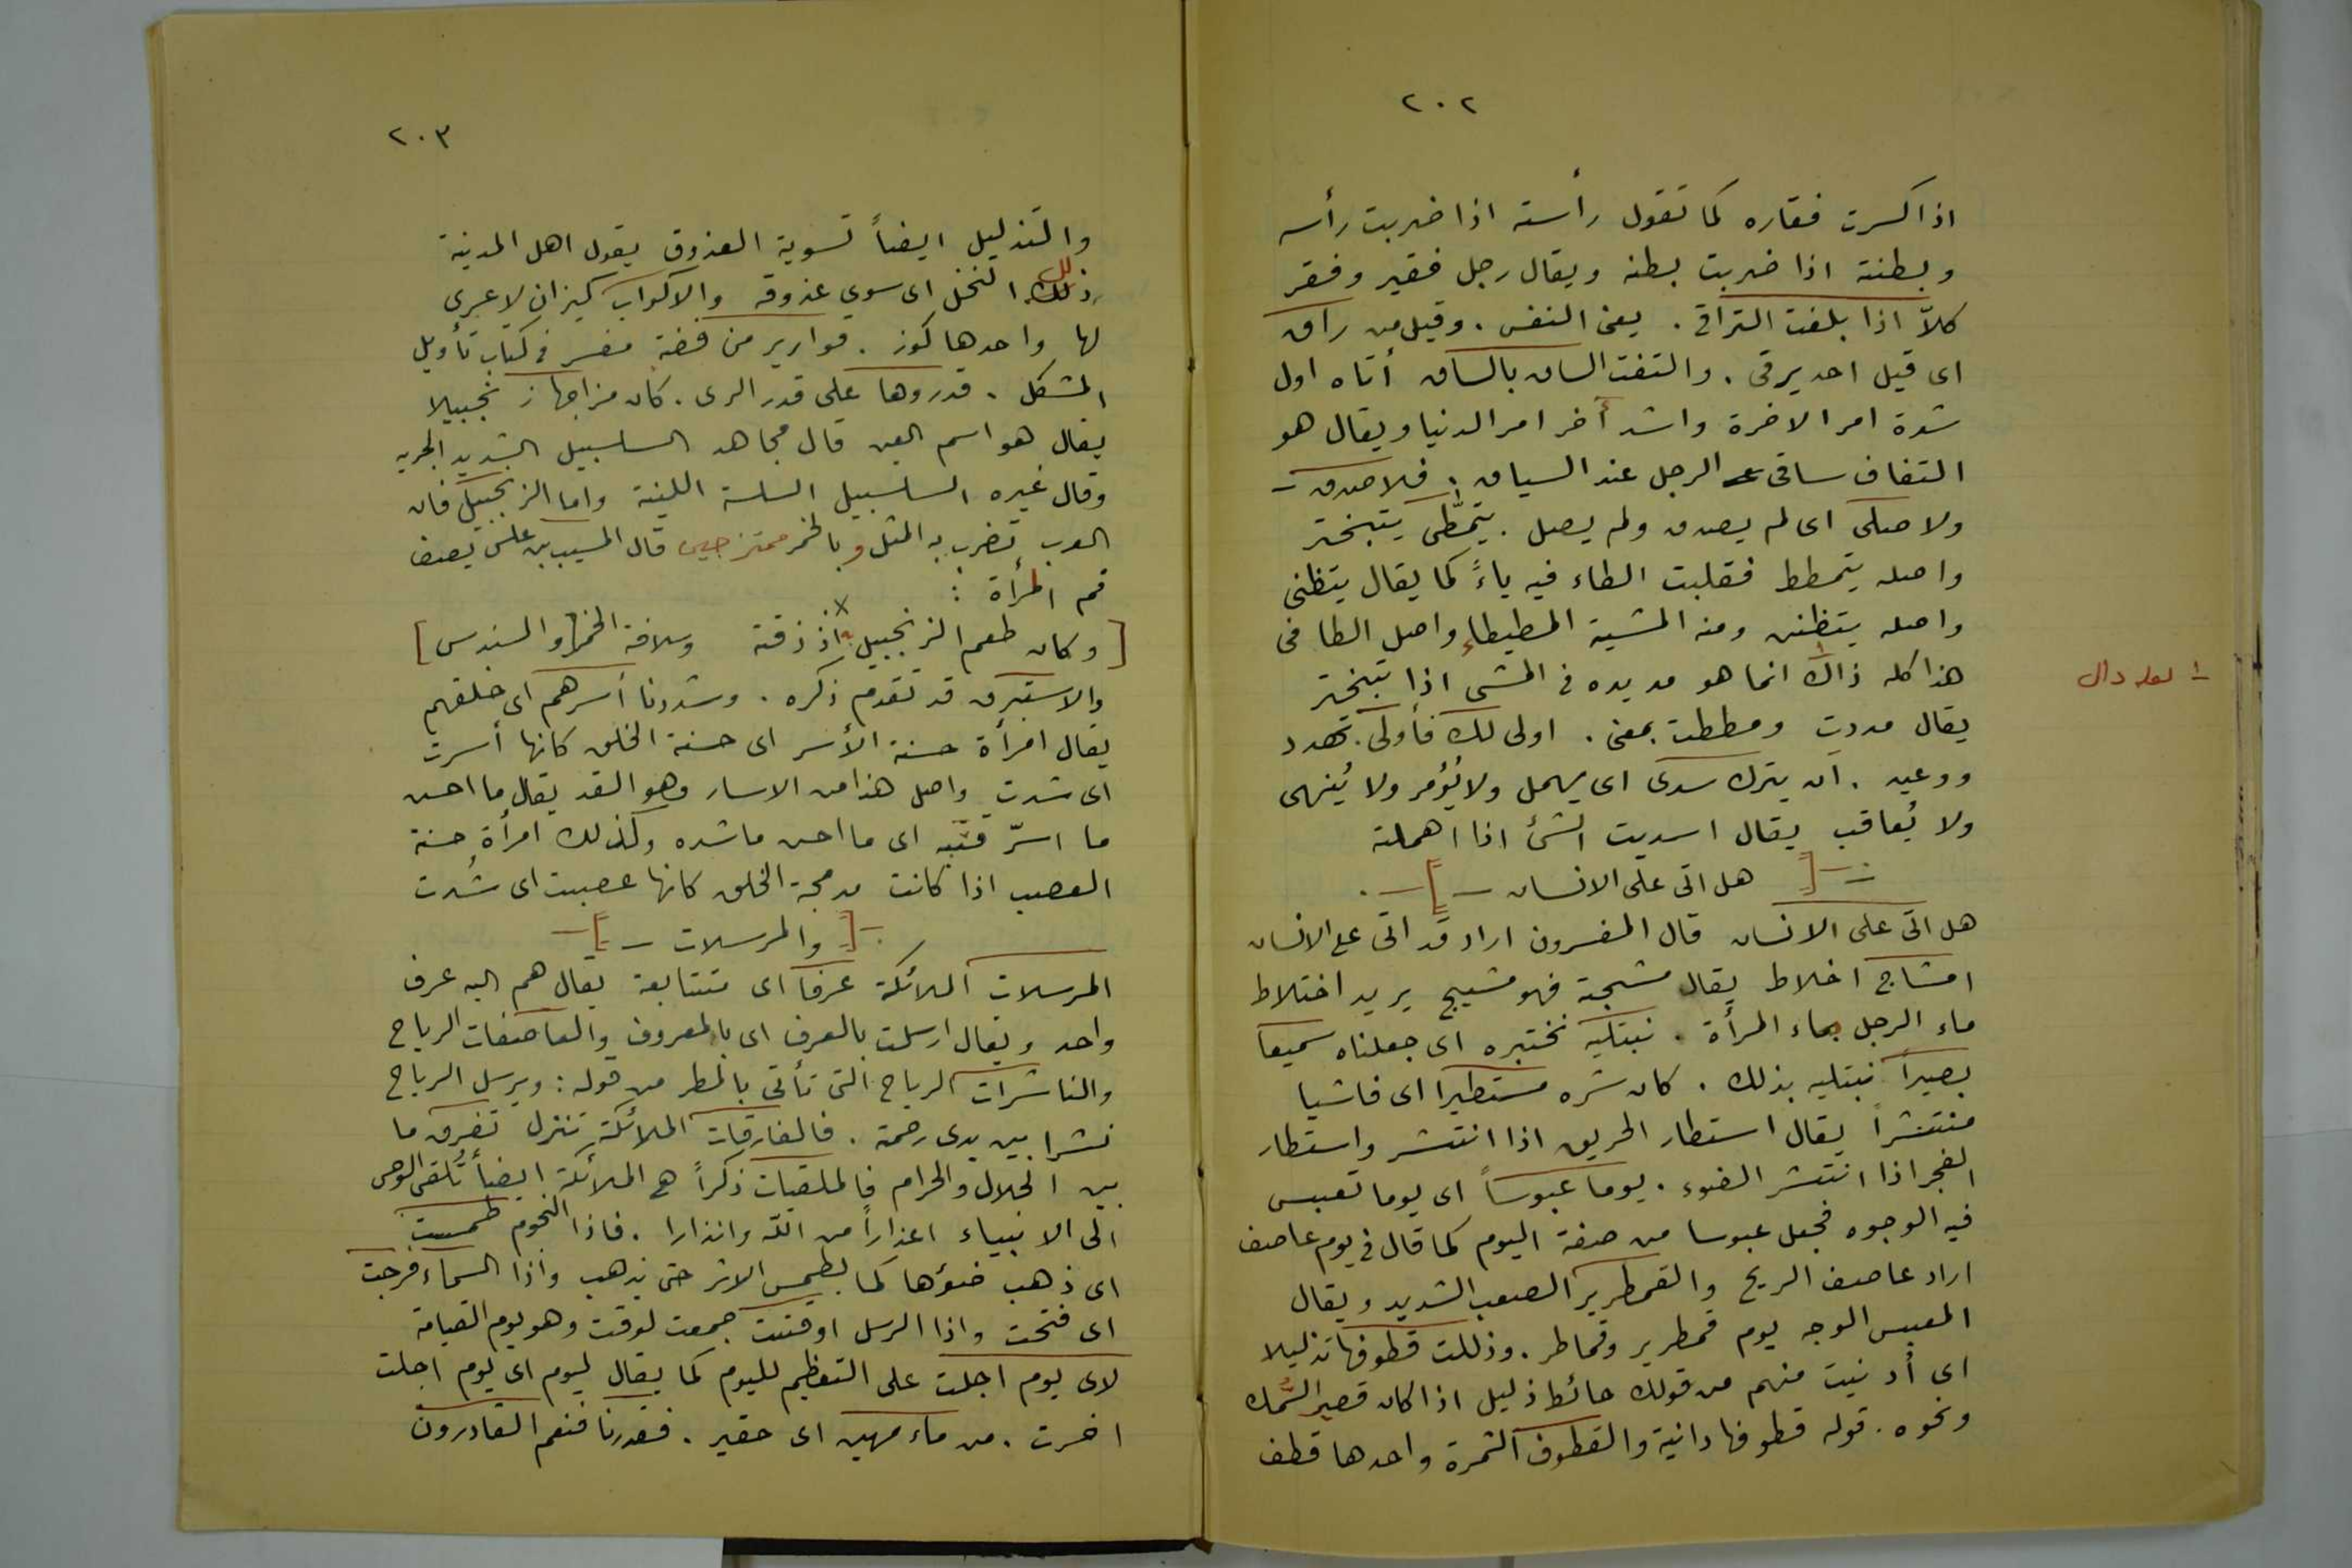 ٢٠٢
اذا كسرت فقاره كما تقول رأسته اذا ضربت رأسه
وبطنته اذا ضربت بطنه ويقال رجل فقير وفقر
كلاّ اذا بلغت التراقى . يعنى النفس . وقيل من راق
اى قيل احد يرقى . والتفت الساق بالساق أتاه اول
شدة امر الاخرة واشد أخر امر الدنيا ويقال هو
التفاف ساقى الرجل عند السياق . فلا صدق
ولا صلى اى لم يصدق ولم يصل . يتمطّى يتبختر
واصله يتمطط فقلبت الطاء فيه ياءً كما يقال يتظنى
واصله يتظنن ومنه المشية المطيطاء واصل الطا فى
هذا كله ذاك انما هو مد يده فى المشى اذا تبختر
١ـ لعله دال
يقال مددت ومططت بمعنى . اولى لك فأولى . تهدد
ووعيد . ان يترك سدى اى يهمل ولا يُؤمر ولا يُنهى
ولا يُعاقب يقال اسديت الشئ اذا اهملته
ـ [ هل اتى على الانسان ـ ] ـ .
هل اتى على الانسان قال المفسرون اراد قد اتى على الانسان
امشاج اخلاط يقال مشجته فهو مشيج يريد اختلاط
ماء الرجل بماء المرأة . نبتليه نختبره اى جعلناه سميعا
بصيراً نبتليه بذلك . كان شره مستطيرا اى فاشيا
منتشراً يقال استطار الحريق اذا انتشر واستطار
الفجر اذا انتشر الضوء . يوما عبوساً اى يوما تعبس
فيه الوجوه فجعل عبوسا من صفة اليوم كما قال فى يوم عاصف
اراد عاصف الريح والقمطرير الصعب الشديد ويقال
المعبس الوجه يوم قمطرير وقماطر . وذللت قطوفها تذليلا
اى أدنيت منهم من قولك حائط ذليل اذا كان قصير السُّمك
ونحوه . قوله قطوفها دانية والقطوف الثمرة واحدها قطف
٢٠٣
والتذليل ايضاً تسوية العذوق يقول اهل المدينة
ذلل النخل اى سوى عذوقه والاكواب كيزان لا عرى
لها واحدها كوز . قوارير من فضة مفسر فى كتاب تأويل
المشكل . قدروها على قدر الرى . كان مزاجها زنجبيلا
يقال هو اسم العين قال مجاهد السلسبيل الشديد الجرية
وقال غيره السلسبيل السلسة اللينة واما الزنجبيل فان
العرب تضرب به المثل وبالخمر ممتزجين قال المسيب بن علس يصف
فم المرأة :
[ وكان طعم الزنجبيل به اذ ذقته وسلافة الخمر والسندس ]
والاستبرق قد تقدم ذكره . وشددنا أسرهم اى خلقهم
يقال امرأة حسنة الأسر اى حسنة الخلق كانها أسرت
اى شدت واصل هذا من الاسار وهو القد يقال ما احسن
ما اسرّ قتبه اى ما احسن ما شده وكذلك امرأة حسنة
العصب اذا كانت مدمجة الخلق كانها عصبت اى شُدت
ـ [ والمرسلات ـ ] ـ
المرسلات الملائكة عرفا اى متتابعة يقال هم اليه عرف
واحد ويقال ارسلت بالعرف اى بالمعروف والعاصفات الرياح
والناشرات الرياح التى تأتى بالمطر من قوله : ويرسل الرياح
نشرا بين يدى رحمته . فالفارقات الملائكة تنزل تفرق ما
بين الحلال والحرام فالملقيات ذكراً هى الملائكة ايضاً تُلقى الوحى
الى الانبياء اعذاراً من الله وانذارا . فاذا النجوم طمست
اى ذهب ضوؤها كما يطمس الاثر حتى يذهب واذا السماء فرجت
اى فتحت واذا الرسل اوقتت جمعت لوقت وهو يوم القيامة
لاى يوم اجلت على التعظيم لليوم كما يقال ليوم اى يوم اجلت
اخرت . من ماء مهين اى حقير . فقدرنا فنعم القادرون